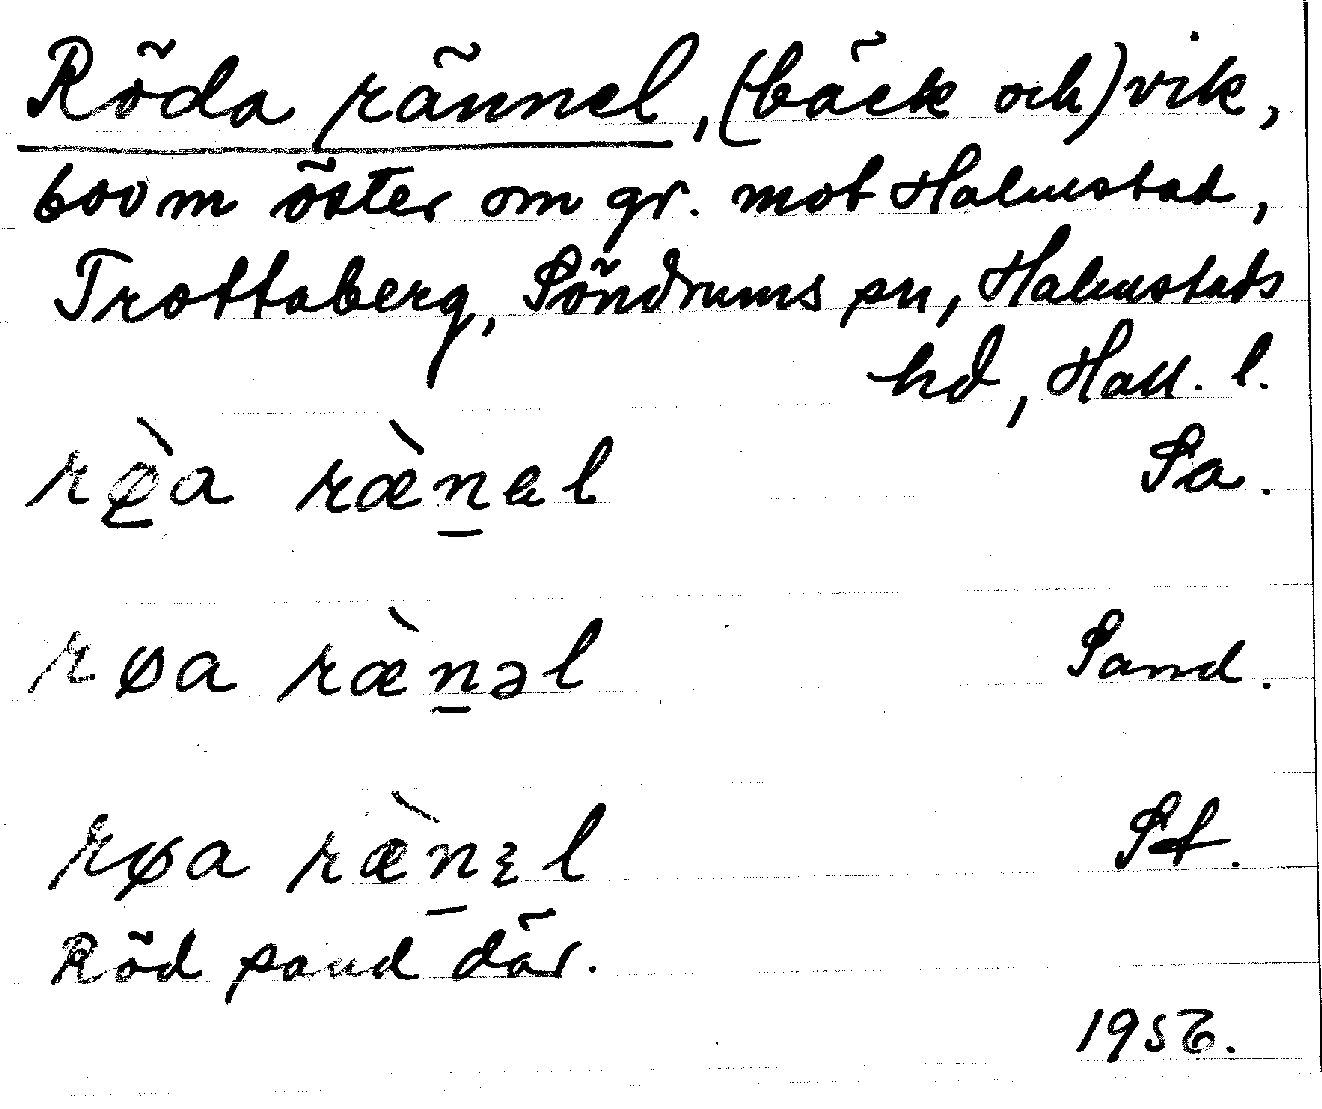 Röda rännel, (bäck och) vik,
600 m öster om gr. mot Halmstad,
Trottaberg, Söndrums sn, Halmstads
hd, Hall. l.
rø̠̀a ræ̀n̠ɐl Sa.
røa ræ̀n̠əl Sand.
røa ræ̀n̠ɛl St.
Röd sand där.
1956.